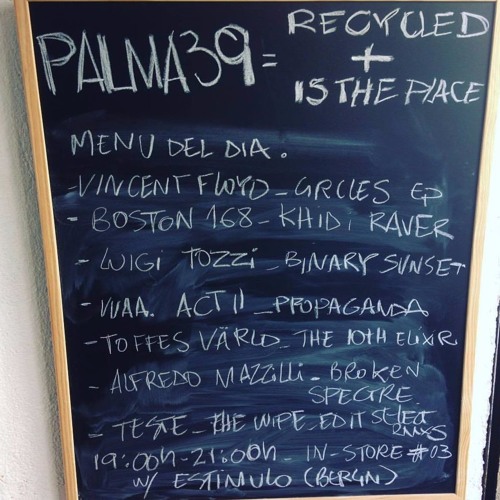 PALMA39 = RECYCLED
+
IS THE PLACE
MENU DEL DIA.
- VINCENT FLOYD_ CIRCLES EP
- BOSTON 168_ KHIDI RAVER
- LUIGI TOZZI_ BINARY SUNSET
- VVAA. ACT II_ PROPAGANDA
- TOFFES VÄRLD_ THE 10TH ELIXIR
- ALFREDO MAZZILLI_ BROKEN
SPECTRE.
- TESTE_ THE WIPE_ EDIT SELECT
RMXS
19:00h-21:00h_ IN-STORE #03
W/ ESTIMULO (BERLIN)